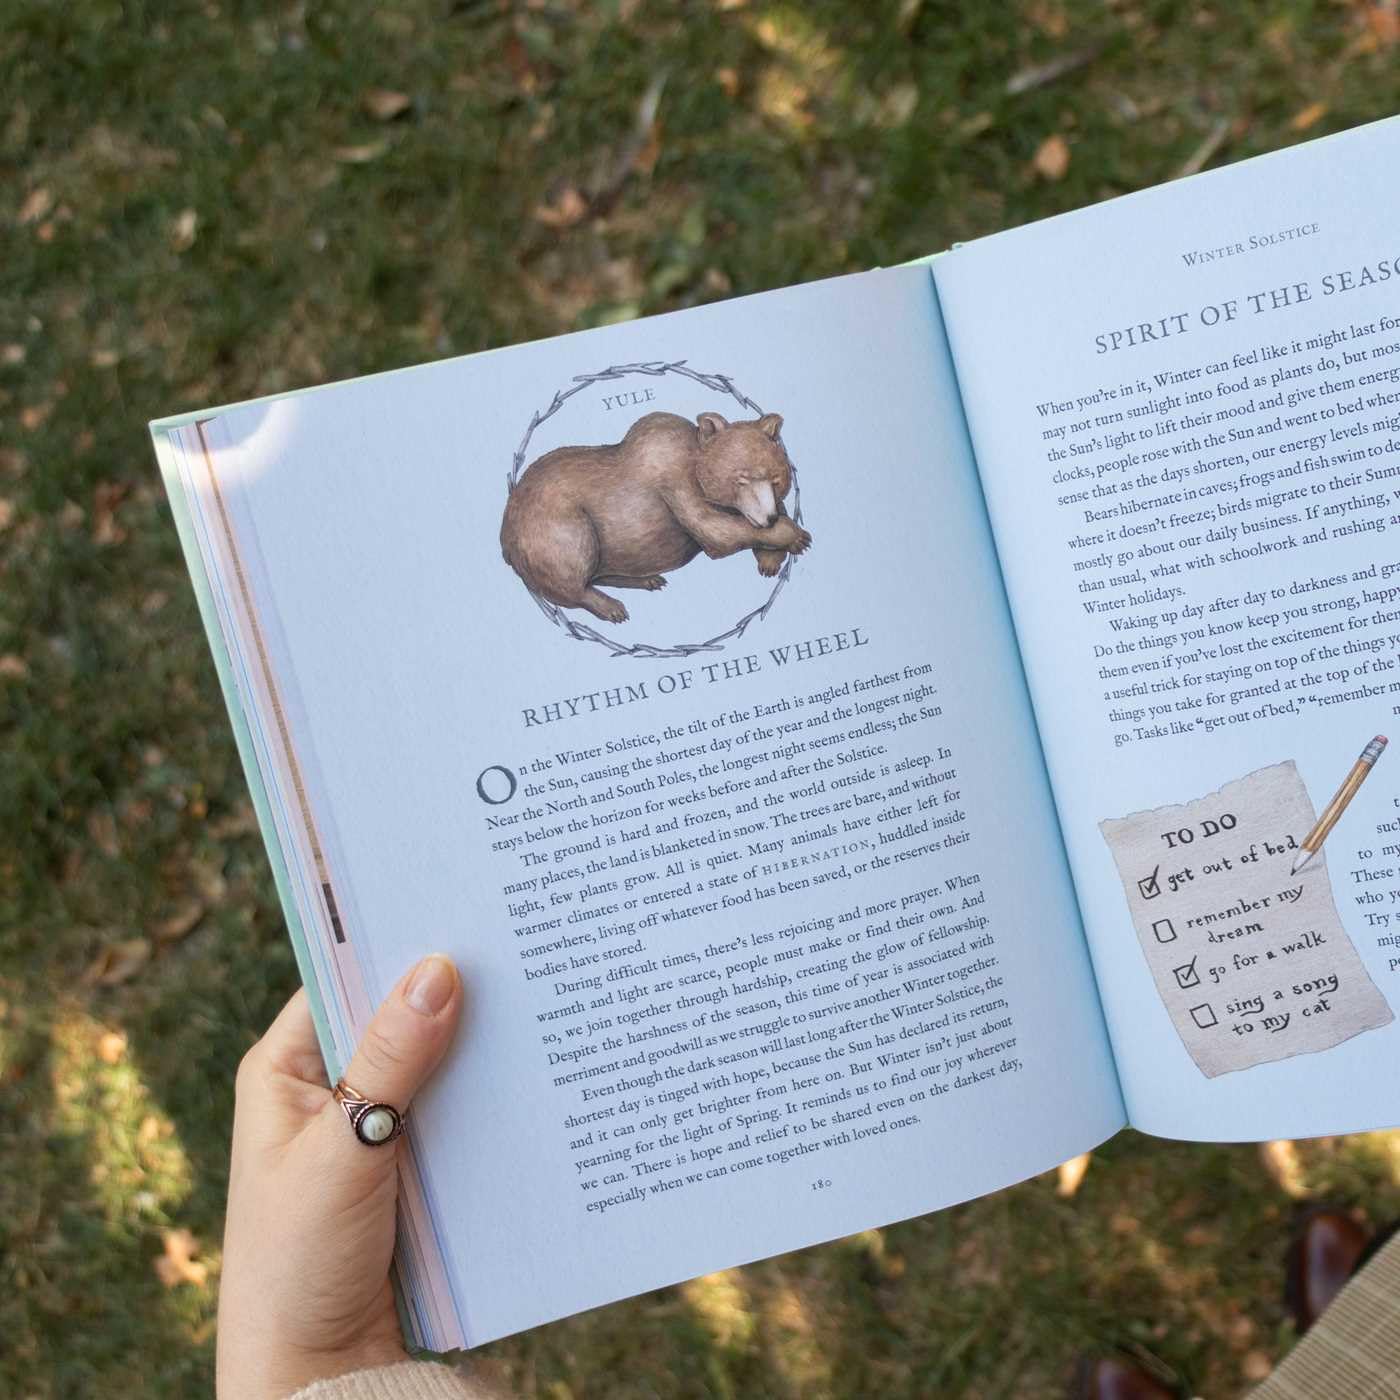 YULE
RHYTHM OF THE WHEEL
On the Winter Solstice, the tilt of the Earth is angled farthest from
the Sun, causing the shortest day of the year and the longest night.
Near the North and South Poles, the longest night seems endless; the Sun
stays below the horizon for weeks before and after the Solstice.
The ground is hard and frozen, and the world outside is asleep. In
many places, the land is blanketed in snow. The trees are bare, and without
light, few plants grow. All is quiet. Many animals have either left for
warmer climates or entered a state of HIBERNATION, huddled inside
somewhere, living off whatever food has been saved, or the reserves their
bodies have stored.
During difficult times, there's less rejoicing and more prayer. When
warmth and light are scarce, people must make or find their own. And
so, we join together through hardship, creating the glow of fellowship.
Despite the harshness of the season, this time of year is associated with
merriment and goodwill as we struggle to survive another Winter together.
Even though the dark season will last long after the Winter Solstice, the
shortest day is tinged with hope, because the Sun has declared its return,
and it can only get brighter from here on. But Winter isn't just about
yearning for the light of Spring. It reminds us to find our joy wherever
we can. There is hope and relief to be shared even on the darkest day,
especially when we can come together with loved ones.
180
WINTER SOLSTICE
SPIRIT OF THE SEAS
When you're in it, Winter can feel like it might last for
may not turn sunlight into food as plants do, but mos
the Sun's light to lift their mood and give them energy
clocks, people rose with the Sun and went to bed when
sense that as the days shorten, our energy levels mig
Bears hibernate in caves; frogs and fish swim to de
where it doesn't freeze; birds migrate to their Sum
mostly go about our daily business. If anything,
than usual, what with schoolwork and rushing
Winter holidays.
Waking up day after day to darkness and gra
Do the things you know keep you strong, happy
them even if you've lost the excitement for them
a useful trick for staying on top of the things yo
things you take for granted at the top of the
go. Tasks like “get out of bed,” “remember m
TO DO
get out of bed
remember my
dream
go for a walk
sing a song
to my cat
suc
to my
These
who yo
Try s
mig